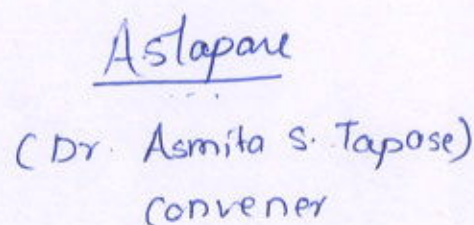 Astapase
(Dr. Asmita S. Tapase)
Convener